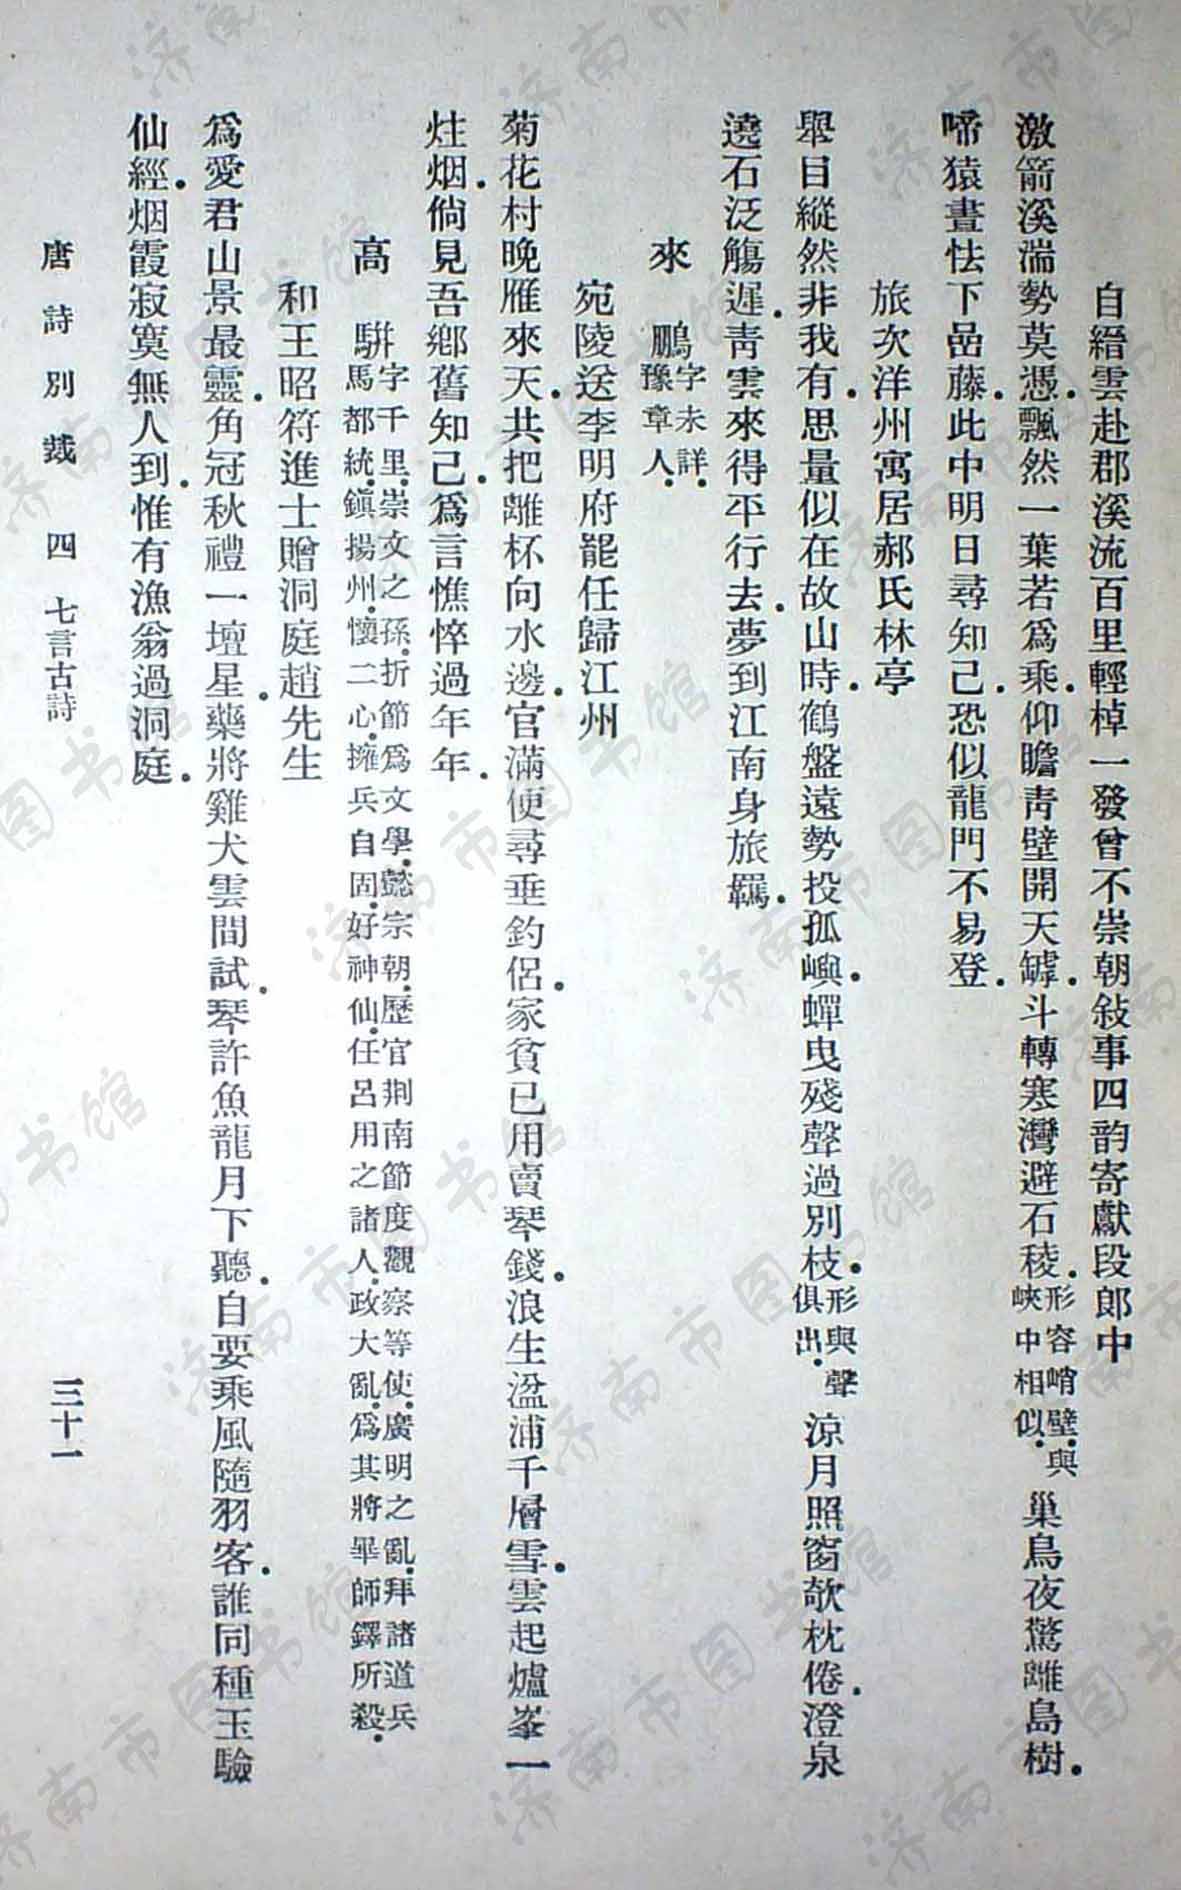 自縉雲赴郡溪流百里輕棹一發曾不崇朝敍事四韵寄獻段郎中
激箭溪湍勢莫憑．飄然一葉若爲乘．仰瞻靑壁開天罅．斗轉寒灣避石稜．形容峭壁．與峽中相似．巢鳥夜驚離島樹．
啼猿晝怯下嵒藤．此中明日尋知己．恐似龍門不易登．
旅次洋州寓居郝氏林亭
舉目縱然非我有．思量似在故山時．鶴盤遠勢投孤嶼．蟬曳殘聲過別枝．形與聲俱出．涼月照窗欹枕倦．澄泉
遶石泛觴遲．靑雲來得平行去．夢到江南身旅羈．
來　鵬字未詳．豫章人．
宛陵送李明府罷任歸江州
菊花村晚雁來天．共把離杯向水邊．官滿便尋垂釣侶．家貧已用賣琴錢．浪生湓浦千層雪．雲起爐峯一
炷烟．倘見吾鄕舊知己．爲言憔悴過年年．
高　駢字千里．崇文之孫．折節爲文學．懿宗朝．歷官荆南節度觀察等使．廣明之亂．拜諸道兵馬都統．鎭揚州．懷二心．擁兵自固．好神仙．任呂用之諸人．政大亂．爲其將畢師鐸所殺．
和王昭符進士贈洞庭趙先生
爲愛君山景最靈．角冠秋禮一壇星．藥將雞犬雲間試．琴許魚龍月下聽．自要乘風隨羽客．誰同種玉驗
仙經．烟霞寂寞無人到．惟有漁翁過洞庭．
唐詩別裁　四　七言古詩　三十一
济南市图书馆